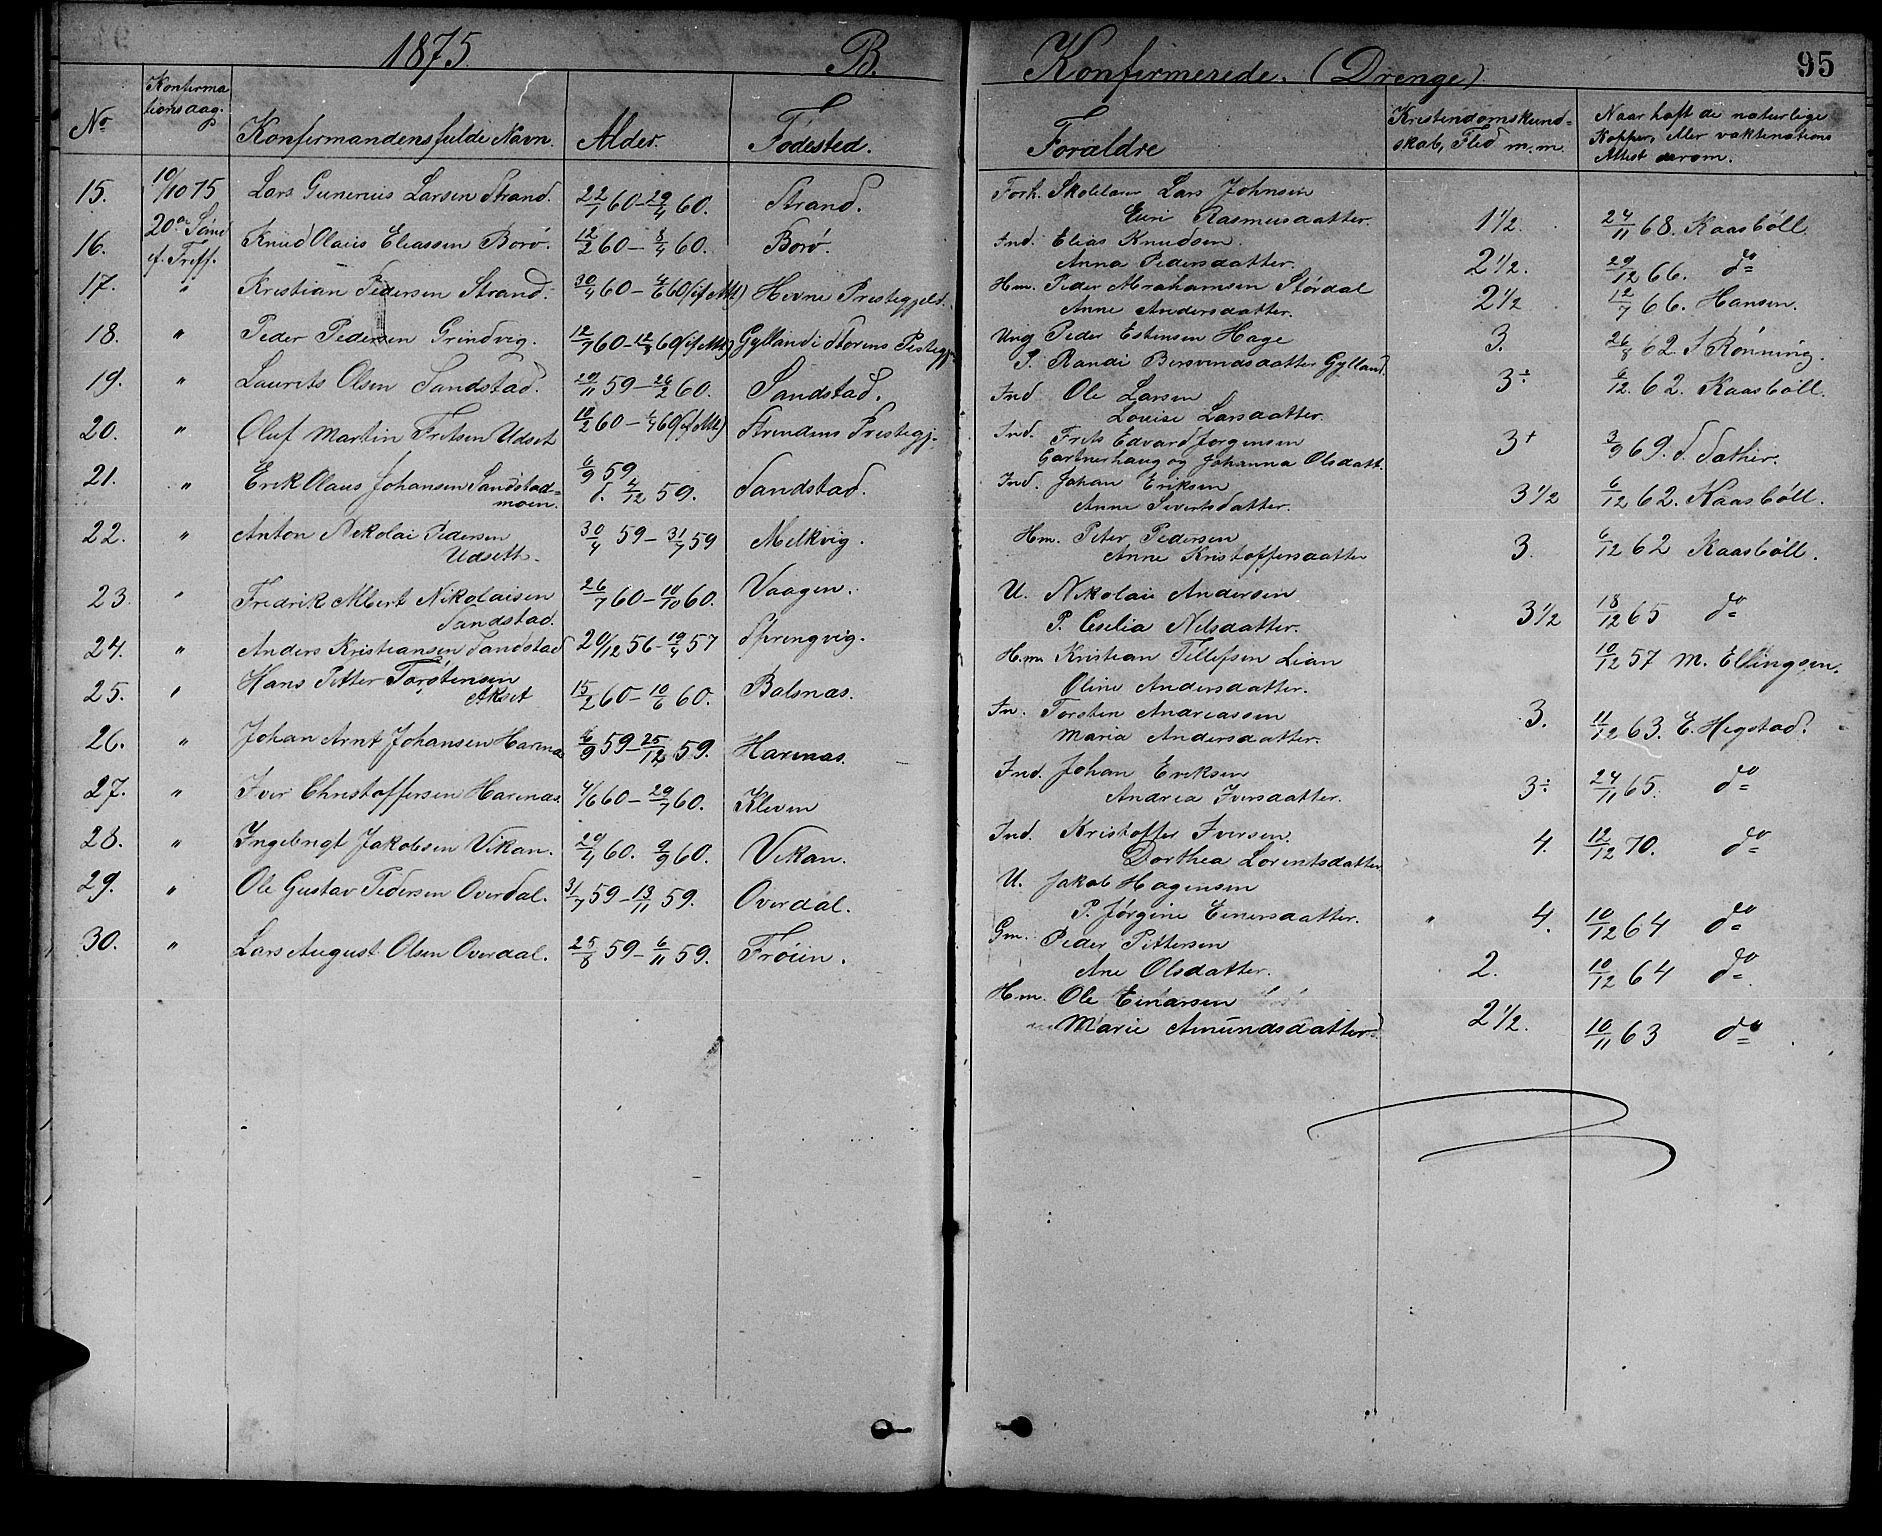 1875. B. Konfirmerede. (Drenge) 95
No Konfirma tionsdag. Konfirmandens fulde Navn. Alder. Fødested. Foraldre Kristendomskund- skab, Flid m.m. Naar haft de naturlige Kopper, eller vaktinations Attest derom.
15. 10/10 75 Lars Gunerius Larsen Strand. 22/1 60 - 29/4 60. Strand. Forh. Skolelærer Lars Johnsen
Guri Rasmusdatter. 1 1/2. 24/11 68. Kaasböll.
16. 20de Sönd e. Treff. Knud Olaus Eliassen Borö. 12/2 60 - 8/4 60. Borö. Ind. Elias Knudsen.
Anna Pedersdatter. 2 1/2. 29/12 66. do
17. " Kristian Pedersen Strand. 30/4 60 - 4/6 60 (if. Att.) Hevne Prestegjeld. Hm. Peder Abrahamsen Stördal
Anne Andersdatter. 2 1/2 12/7 66. Hansen.
18. " Peder Pedersen Grindvig. 12/7 60 - 12/8 60 (if. Att.) Gylland i Störens Prestegj. Ung Peder Estensen Hage
P. Randi Bersvendsdatter Gylland. 3. 26/8 62. S Rönning.
19. " Laurits Olsen Sandstad. 29/11 59 - 26/2 60. Sandstad. Ind Ole Larsen
Louise Larsdatter. 3÷ 6/12. 62. Kaasböll.
20. " Oluf Martin Fritsen Udset 10/2 60 - 1/4 60 (if. Att.) Strindens Prestegj. Ind. Frits Edvard Jørgensen
Gartnerhaug og Johanna Olsdatt. 3+ 3/9 69. S. Sather.
21. " Erik Olaus Johansen Sandstad-
moen. 6/9 59 d. 4/12 59. Sandstad. Ind. Johan Eriksen
Anne Sivertsdatter. 3 1/2 6/12 62. Kaasböll.
22. " Anton Nikolai Pedersen
Udseth. 30/4 59 - 31/7 59 Melkvig. Hm. Peter Pedersen
Anne Kristoffersdatter 3. 6/12 62 Kaasböll.
23 " Fredrik Albert Nikolaisen
Sandstad. 26/7 60 - 10/10 60. Vaagen. U. Nikolai Andersen
P. Cecilia Nilsdatter. 3 1/2 18/12 65 do
24. " Anders Kristiansen Sandstad 20/12 56 - 19/4 57 Sprengvig. Hm. Kristian Tillefsen Lian
Oline Andersdatter. 10/12 57 M. Ellingsen.
25. " Hans Petter Torstensen
Akset 15/2 60 - 10/6 60. Balsnas. In. Torsten Andreassen
Maria Andersdatter. 3. 11/12 63. E. Hegstad.
26. " Johan Arnt Johansen Harenas 6/9 59 - 25/12 59. Harenas. Ind. Johan Eriksen
Andrea Iversdatter. 3÷ 24/11 65. do
27. " Iver Christoffersen Harenas. 4/6 60 - 29/7 60. Kleven Ind. Kristoffer Iversen.
Dorthea Lorentsdatter 4. 12/12 70. do
28. " Ingebrigt Jakobsen Vikan. 29/4 60. 9/9 60. Vikan. U. Jakob Hagensen
P. Jörgine Einersdatter. " 4. 10/12 64 do
29. " Ole Gustav Pedersen Overdal. 31/7 59 - 13/11 59. Overdal. Gm. Peder Pettersen
Ane Olsdatter. 2. 10/12 64 do
30. " Lars August Olsen Overdal. 25/8 59 - 6/11 59. Fröien. Hm. Ole Einarsen
Marie Amundsdatter. 2 1/2. 10/11 63 do